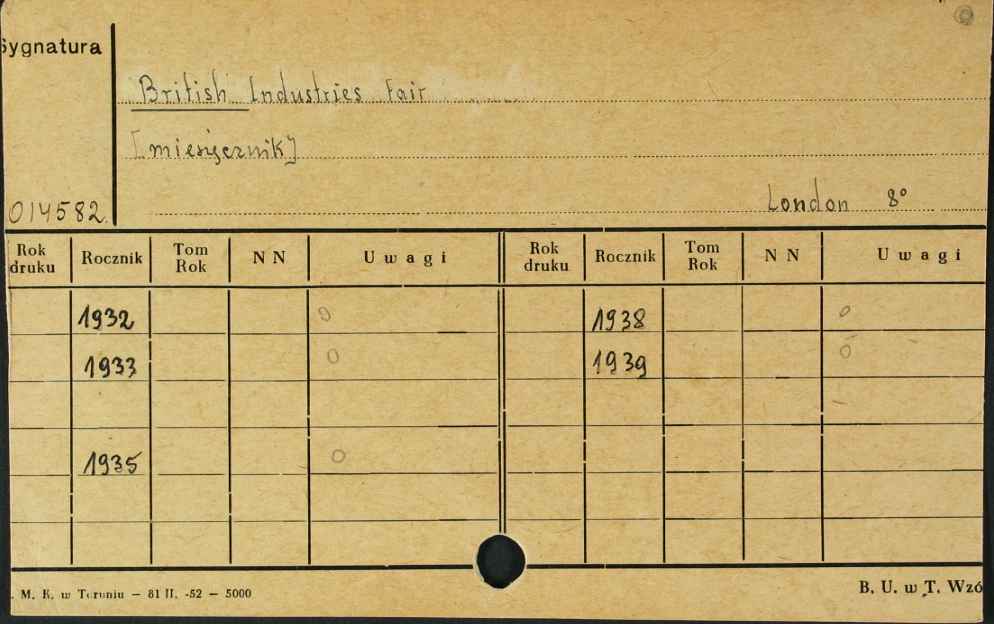 Sygnatura
British Industries Fair
[miesięcznik]
014582.
London 8°
Rok druku Rocznik Tom Rok N N Uwagi Rok druku Rocznik Tom Rok N N Uwagi
1932 o 1938 o
1933 o 1939 o
1935 o
. M. K. w Toruniu — 81 II. -52 — 5000
B. U. w T. Wzó